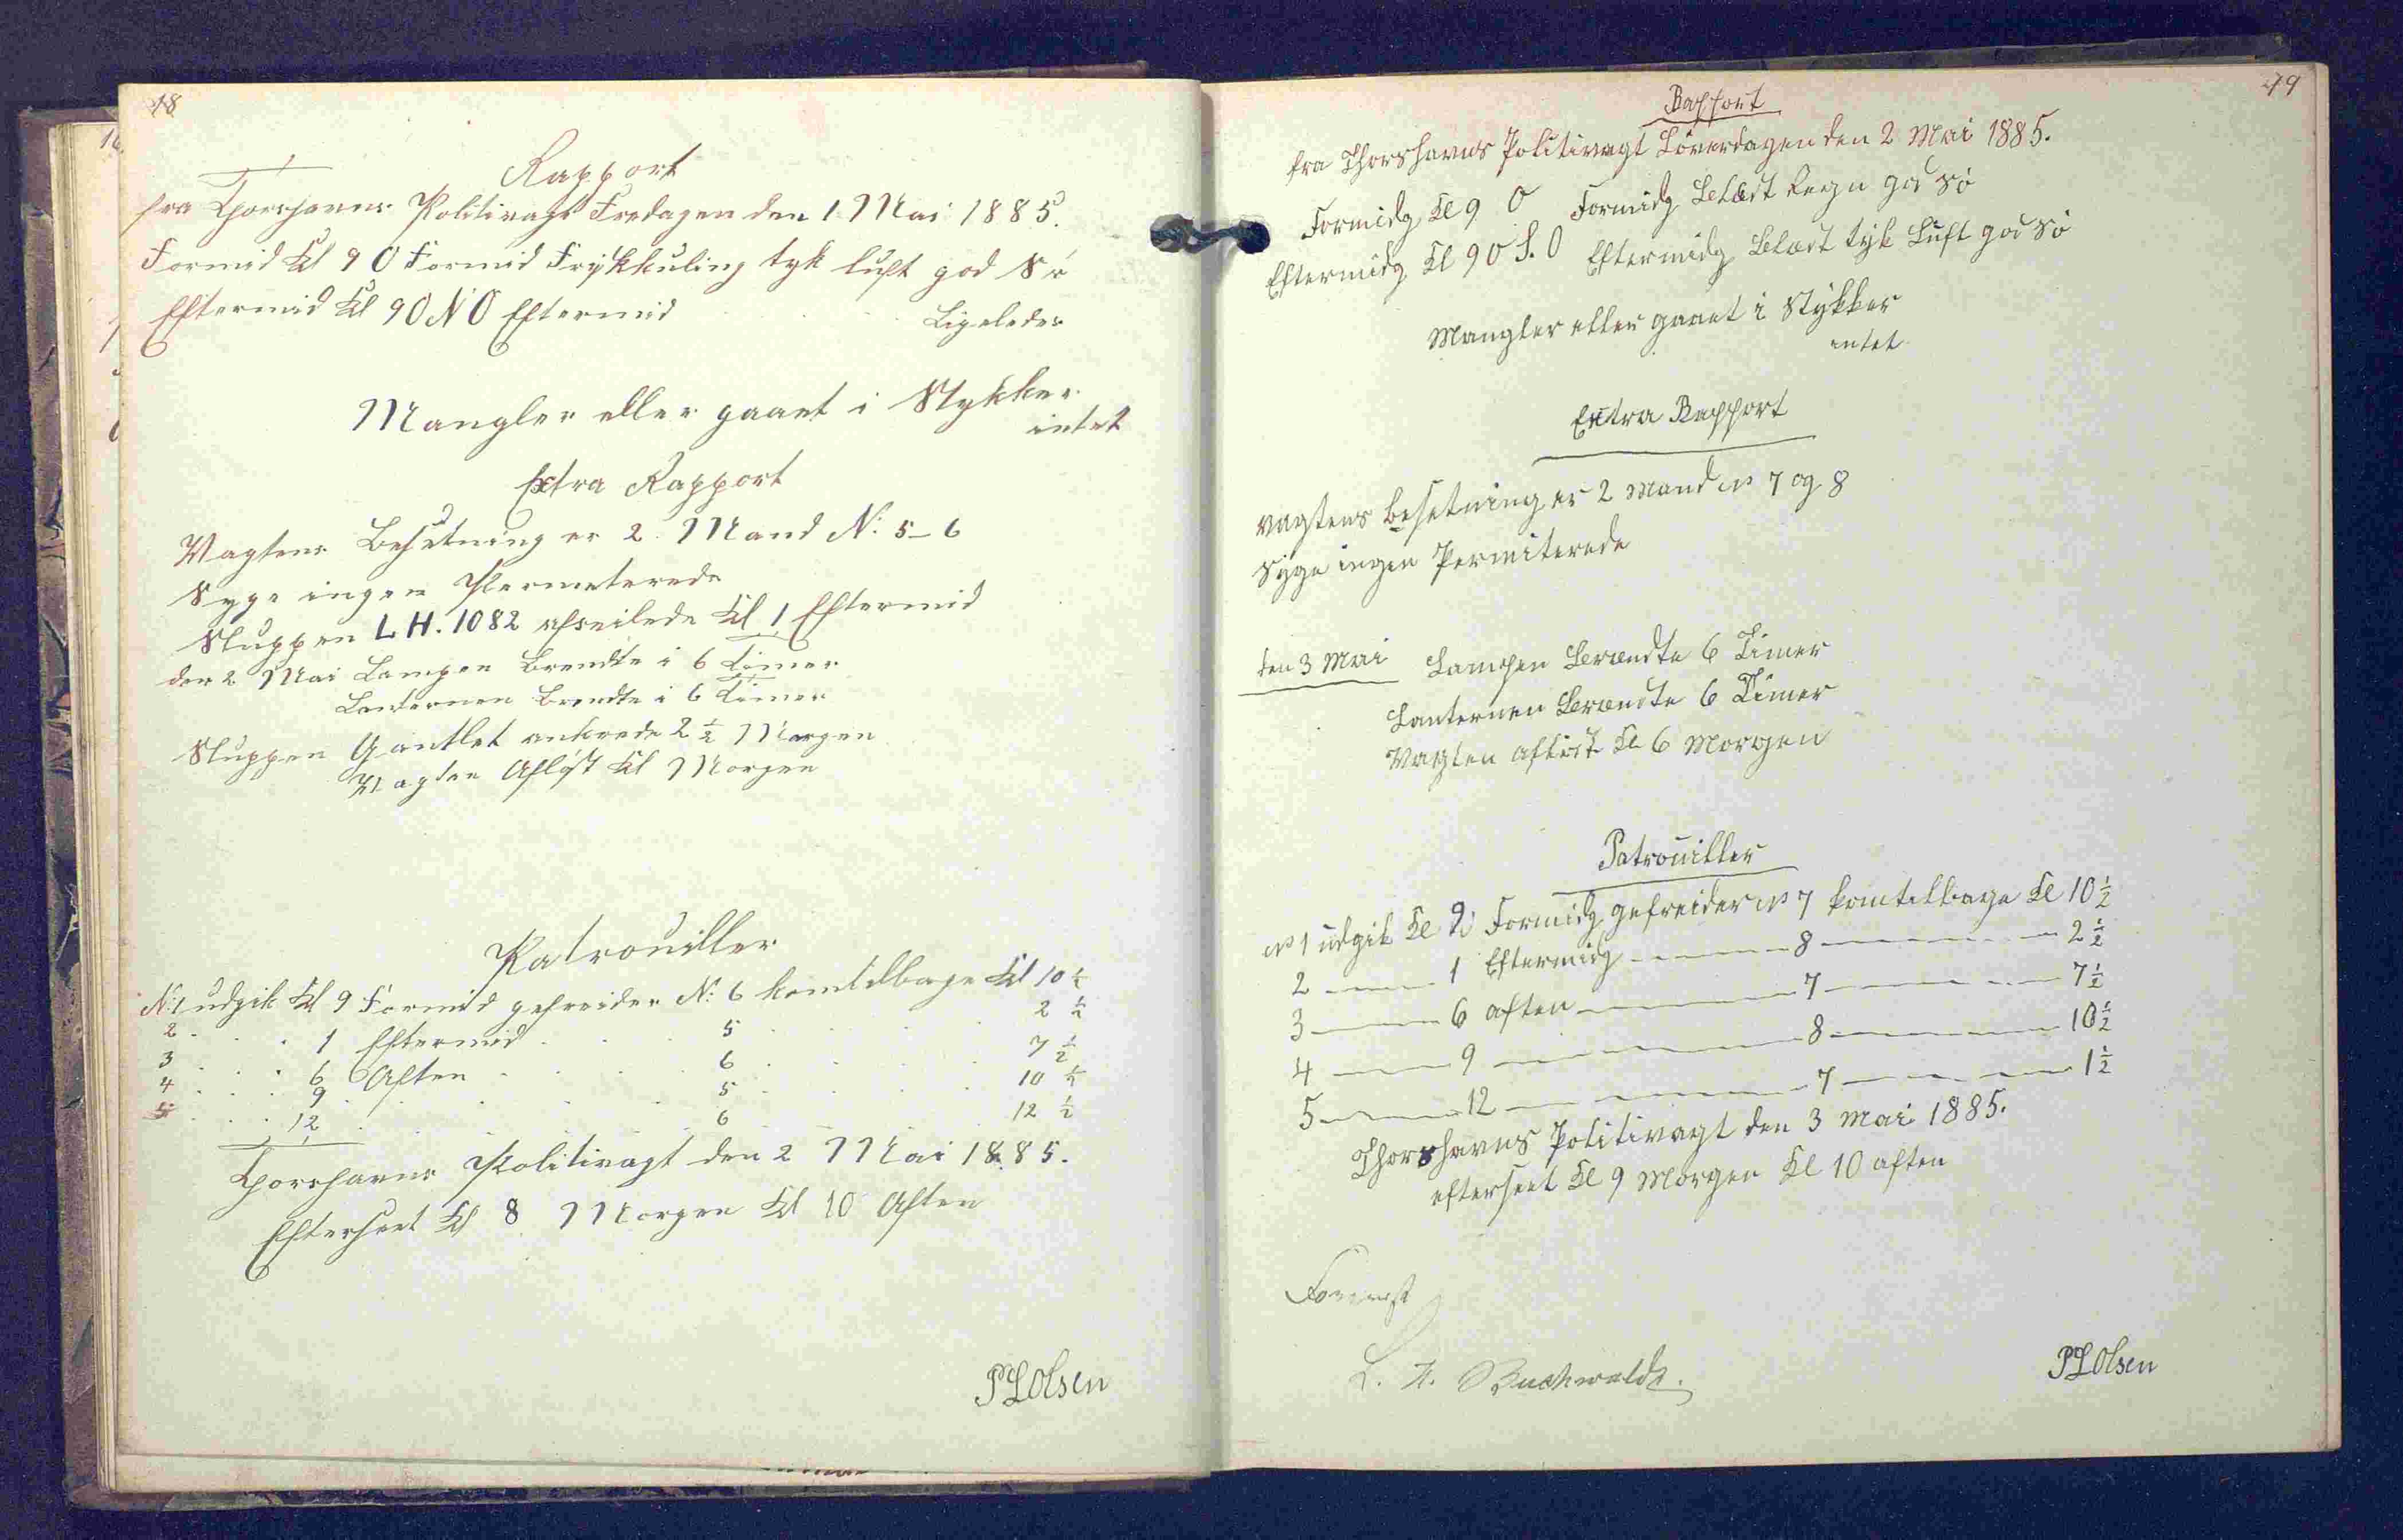 18
Rapport
fra Thorshavns Politivagt Fredagen den 1 Mai 1885.
Formid Kl 9 O Formid Friskkuling tyk luft god Sö
Eftermid Kl 9 O N O Eftermid Ligeledes
Mangler eller gaaet i Stykker
intet
Extra Rapport
Vagtens Besætning er 2 Mand N: 5-6
Syge ingen Permeterede
Sluppen L H. 1082 afseilede Kl 1 Eftermid
den 2 Mai Lampen brendte i 6 Timer
Lanternen brendte i 6 Timer
Sluppen Gantlet ankrede 2 1/2 Morgen
Vagten Aflöst Kl Morgen
Patrouiller
N:1 udgik Kl 9 Formid gefreider N: 6 komtilbage Kl 10 1/2
2 . . . 1 Eftermid . . . 5 . . . 2 1/2
3 . . . 6 Aften . . . 6 . . . 7 1/2
4 . . . 9 . . . 5 . . . 10 1/2
5 . . . 12 . . . 6 . . . 12 1/2
Thorshavns Politivagt den 2 Mai 1885.
Efterseet Kl 8 Morgen Kl 10 Aften
PLOlsen
19
Rapport
fra Thorshavns Politivagt Löverdagen den 2 Mai 1885.
Formidg Kl 9 O Formidg Blæst Regn god Sö
Eftermidg Kl 9 O S. O Eftermidg Blæst tyk Luft god Sö
Mangler eller gaaet i Stykker
intet
Extra Rapport
Vagtens Besetning er 2 Mand No 7 og 8
Syge ingen Permiterede
den 3 Mai Lampen Brændte 6 Timer
Lanternen Brændte 6 Timer
Vagten aflöst Kl 6 Morgen
Patrouiller
No 1 udgik Kl 9 Formidg gefreider No 7 komtilbage Kl 10 1/2
2 — 1 Eftermidg — 8 — 2 1/2
3 — 6 aften — 7 — 7 1/2
4 — 9 — 8 — 10 1/2
5 — 12 — 7 — 1 1/2
Thorshavns Politivagt den 3 Mai 1885.
efterseet Kl 9 Morgen Kl 10 aften
Forevist
Buchwaldt.
PLOlsen